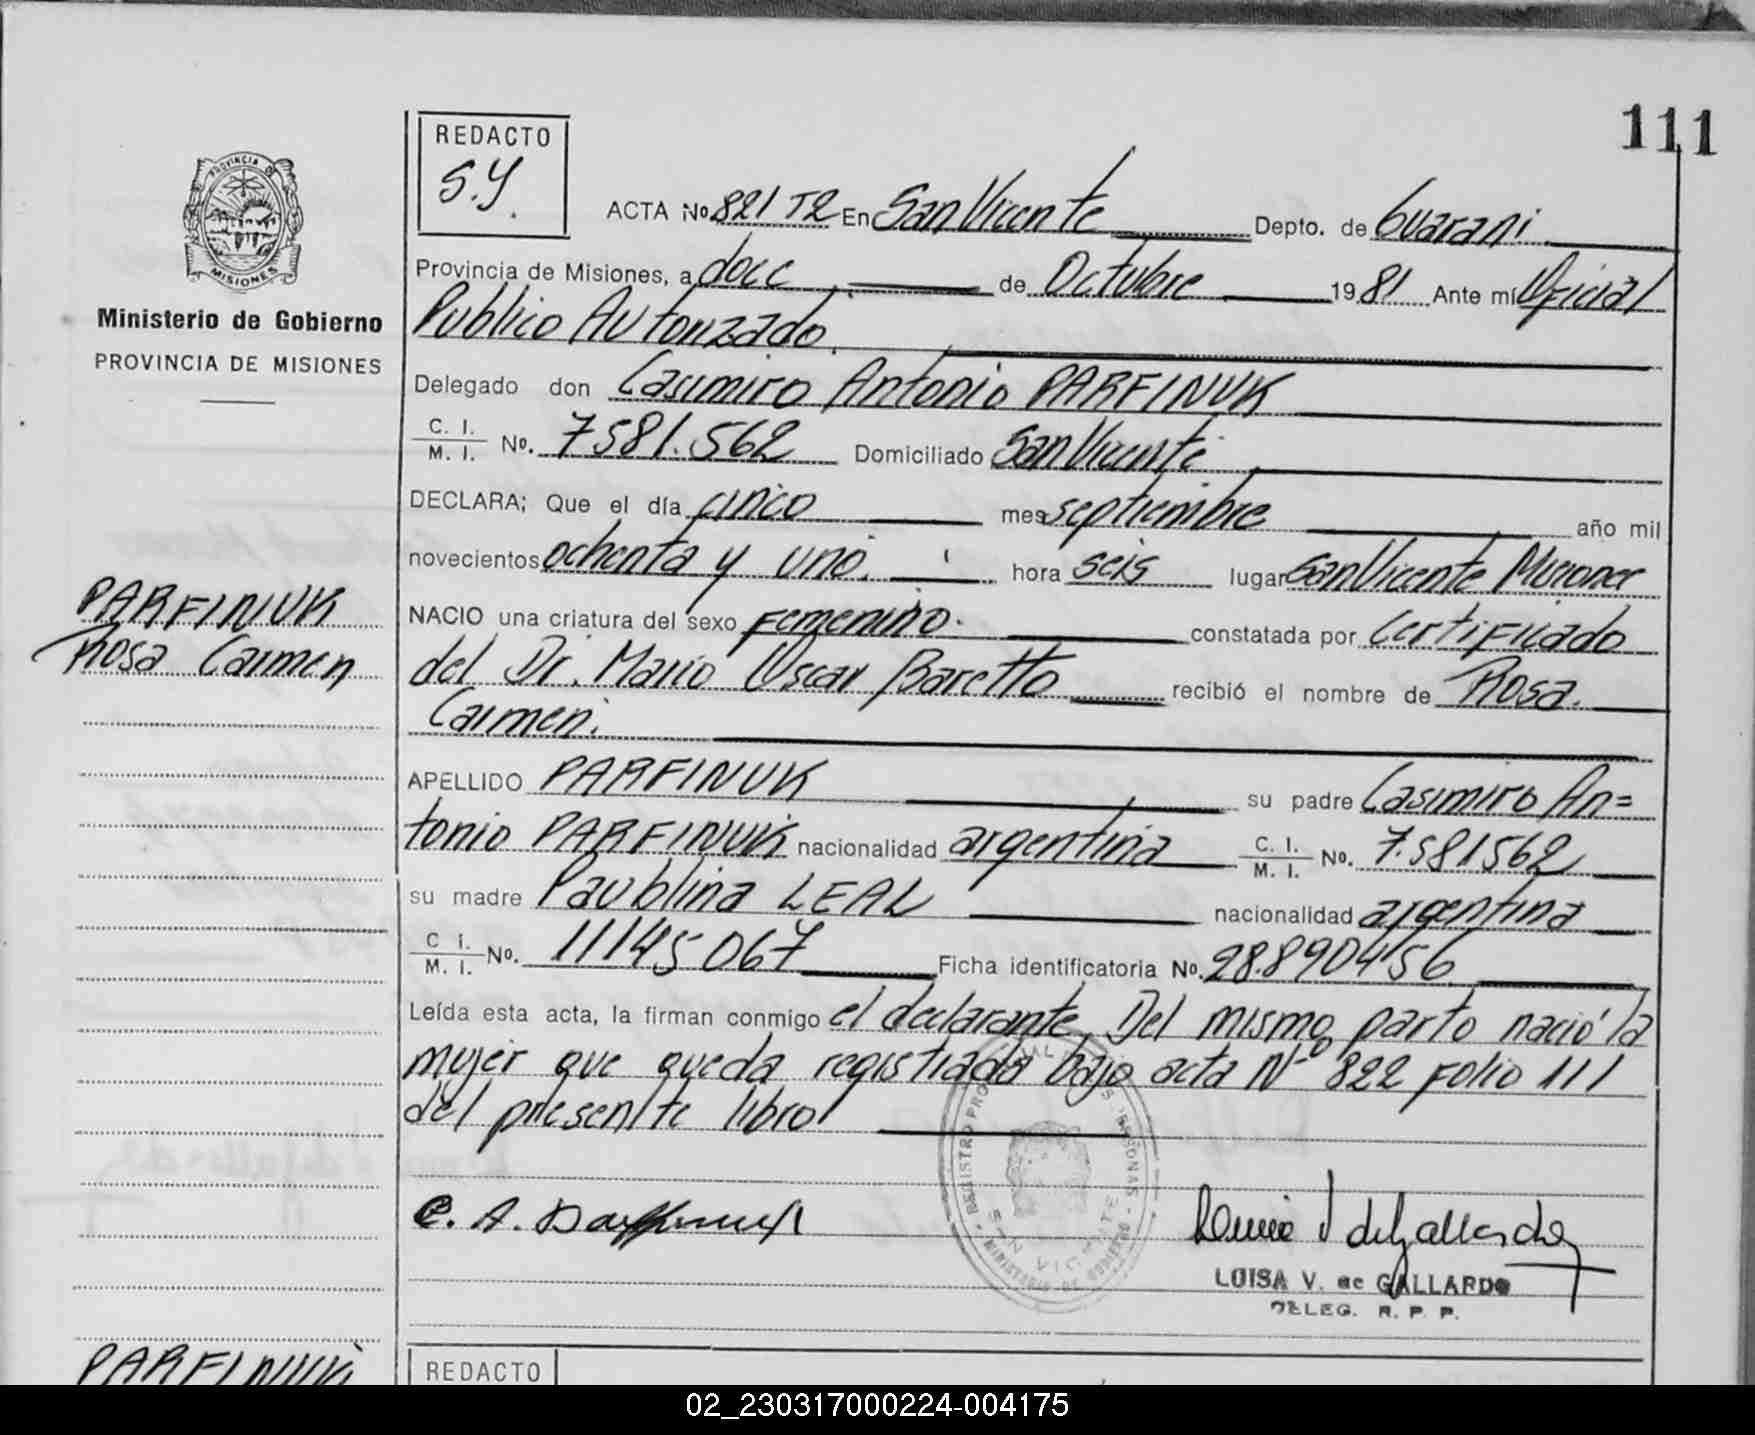 111
REDACTO
S.Y.
ACTA Nº 821 T2 En San Vicente Depto. de Guarani
PROVINCIA DE
MISIONES
Ministerio de Gobierno
PROVINCIA DE MISIONES
Provincia de Misiones, a doce de Octubre 1981 Ante mí Oficial
Publico Autorizado.
Delegado don Casimiro Antonio PARFINUK
C. I.
M. I. Nº. 7581.562 Domiciliado San Vicente
DECLARA; Que el día cinco mes septiembre año mil
novecientos ochenta y uno. hora seis lugar San Vicente Misiones
PARFINUK
Rosa Carmen
NACIO una criatura del sexo Femenino. constatada por Certificado
del Dr. Mario Oscar Baretto recibió el nombre de Rosa.
Carmen.
APELLIDO PARFINUK su padre Casimiro An=
tonio PARFINUK nacionalidad argentina C. I.
M. I. Nº. 7.581562
su madre Paublina LEAL nacionalidad argentina
C I.
M. I. Nº. 11145067 Ficha identificatoria Nº. 28.890456
Leída esta acta, la firman conmigo el declarante. Del mismo parto nació la
mujer que queda registrada bajo acta Nº 822 Folio 111
del presente libro
REGISTRO PERSONAS
SAN VICENTE
MINISTERIO DE GOBIERNO
LUISA V. de GALLARDO
DELEG. R. P. P.
PARFINUK
REDACTO
02_230317000224-004175